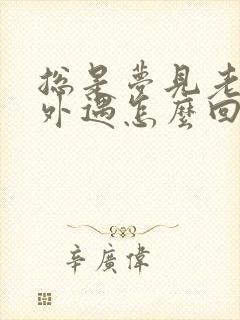 總是夢見老
外遇怎麼回
辛廣偉